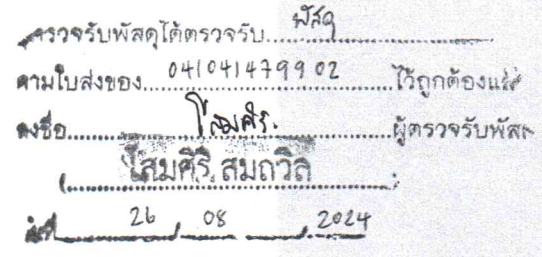 ตรวจรับพัสดุได้ตรวจรับ พัสดุ
ตามใบส่งของ 041041479902 ไว้ถูกต้องแล้ว
ลงชื่อ โสมศิริ ผู้ตรวจรับพัสดุ
(โสมศิริ สมถวิล)
วันที่ 26 / 08 / 2024